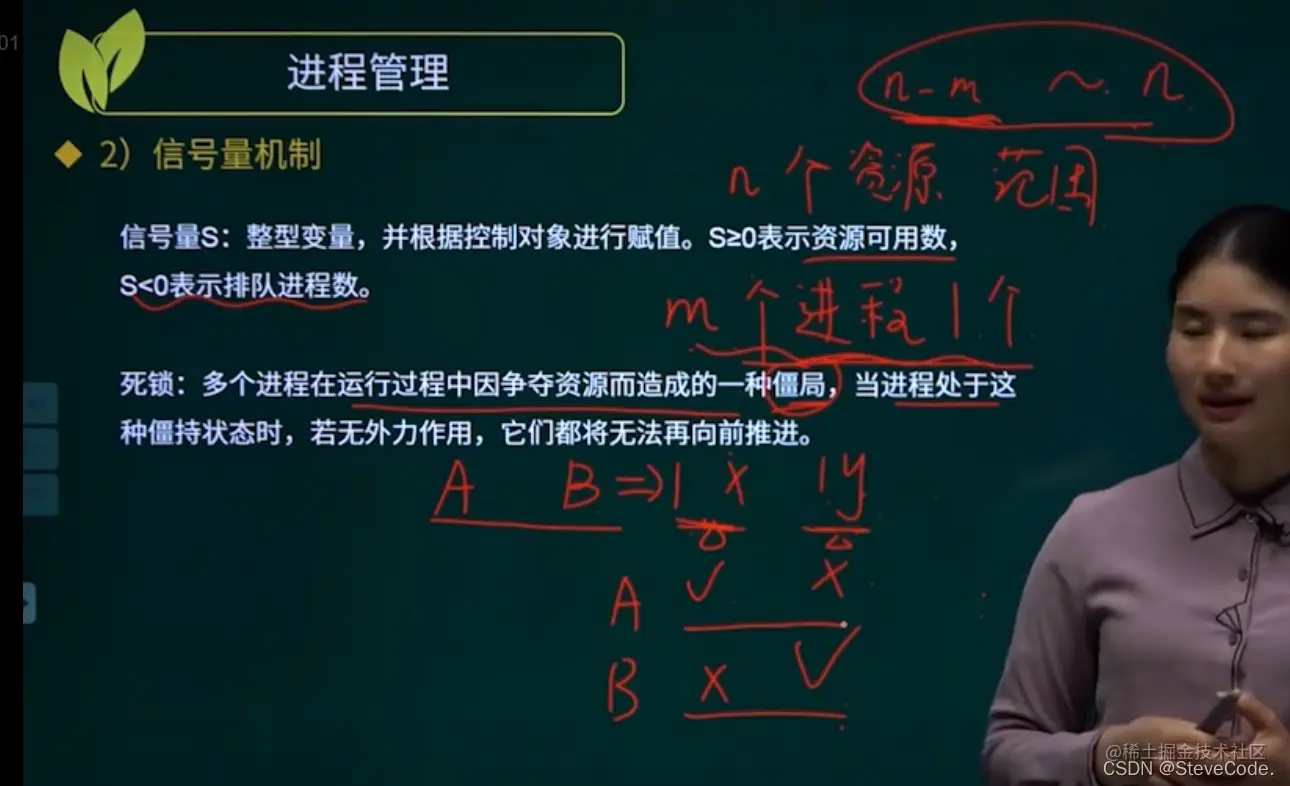 01
进程管理
n-m ~ n
2）信号量机制
n个资源 范围
信号量S：整型变量，并根据控制对象进行赋值。S≥0表示资源可用数，
S<0表示排队进程数。
m个进程1个
死锁：多个进程在运行过程中因争夺资源而造成的一种僵局，当进程处于这
种僵持状态时，若无外力作用，它们都将无法再向前推进。
A B ⇒ 1 X 1 y
A ✓ X
B X ✓
@稀土掘金技术社区
CSDN @SteveCode.